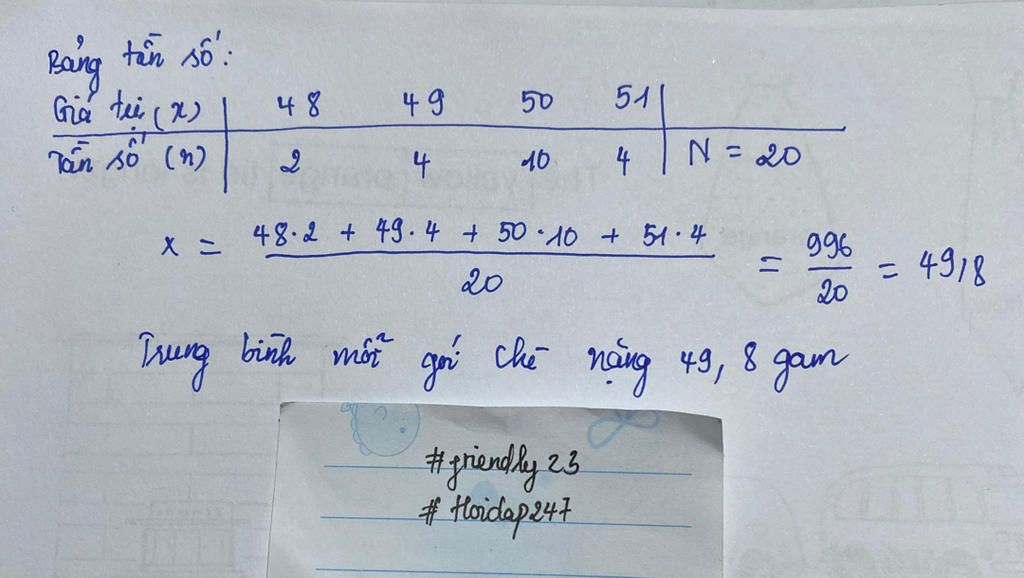 Bảng tần số:
Giá trị (x) 48 49 50 51
Tần số (n) 2 4 10 4 N = 20
x = 48.2 + 49.4 + 50.10 + 51.4 / 20 = 996 / 20 = 49,8
Trung bình mỗi gói chè nặng 49, 8 gam
#friendly23
#Hoidap247